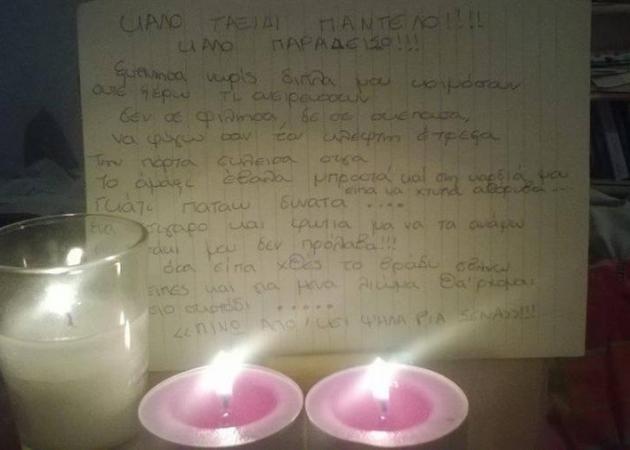 ΚΑΛΟ ΤΑΞΙΔΙ ΠΑΝΤΕΛΟ!!!!
ΚΑΛΟ ΠΑΡΑΔΕΙΣΟ!!!
Ξυπνησα νωρίς διπλα μου κοιμόσουν
ουτε ξέρω τι ονειρευοσουν
δεν σε φιλησα, δε σε σκεπασα,
να φύγω σαν τον κλεφτη έτρεξα
Την πόρτα εκλεισα σιγα
Το αμάξι έβαλα μπροστά και στη καρδιά μου
είπα να χτυπά αθόρυβα ...
Γκάζι παταω δυνατα ....
τσιγαρο και φωτια μα να τα ανάψω
μαι δεν πρόλαβα!!!
όσα είπα χθες το βράδυ σβήνω
και για μενα λιώμα θα'ρχομαι
σκοτάδι .....
<<ΠΙΝΩ ΑΠΟ ΨΗΛΑ ΓΙΑ ΣΕΝΑ>>!!!